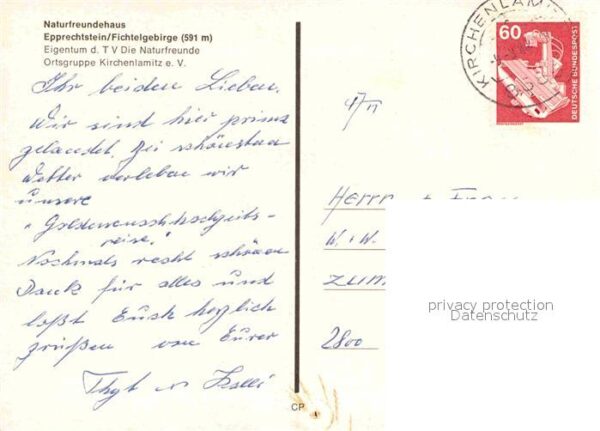 Naturfreundehaus
Epprechtstein/Fichtelgebirge (591 m)
Eigentum d. T V Die Naturfreunde
Ortsgruppe Kirchenlamitz e. V.
Ihr beiden Lieben.
Wir sind hier prima
gelandet. Bei schönstem
Wetter verleben wir
unsere
"Goldene
reise."
Nochmals recht schönen
Dank für alles und
laßt Euch herzlich
grüßen von Eurer
KIRCHENLAMITZ
60
DEUTSCHE BUNDESPOST
Herrn
W.
2800
privacy protection
Datenschutz
CP